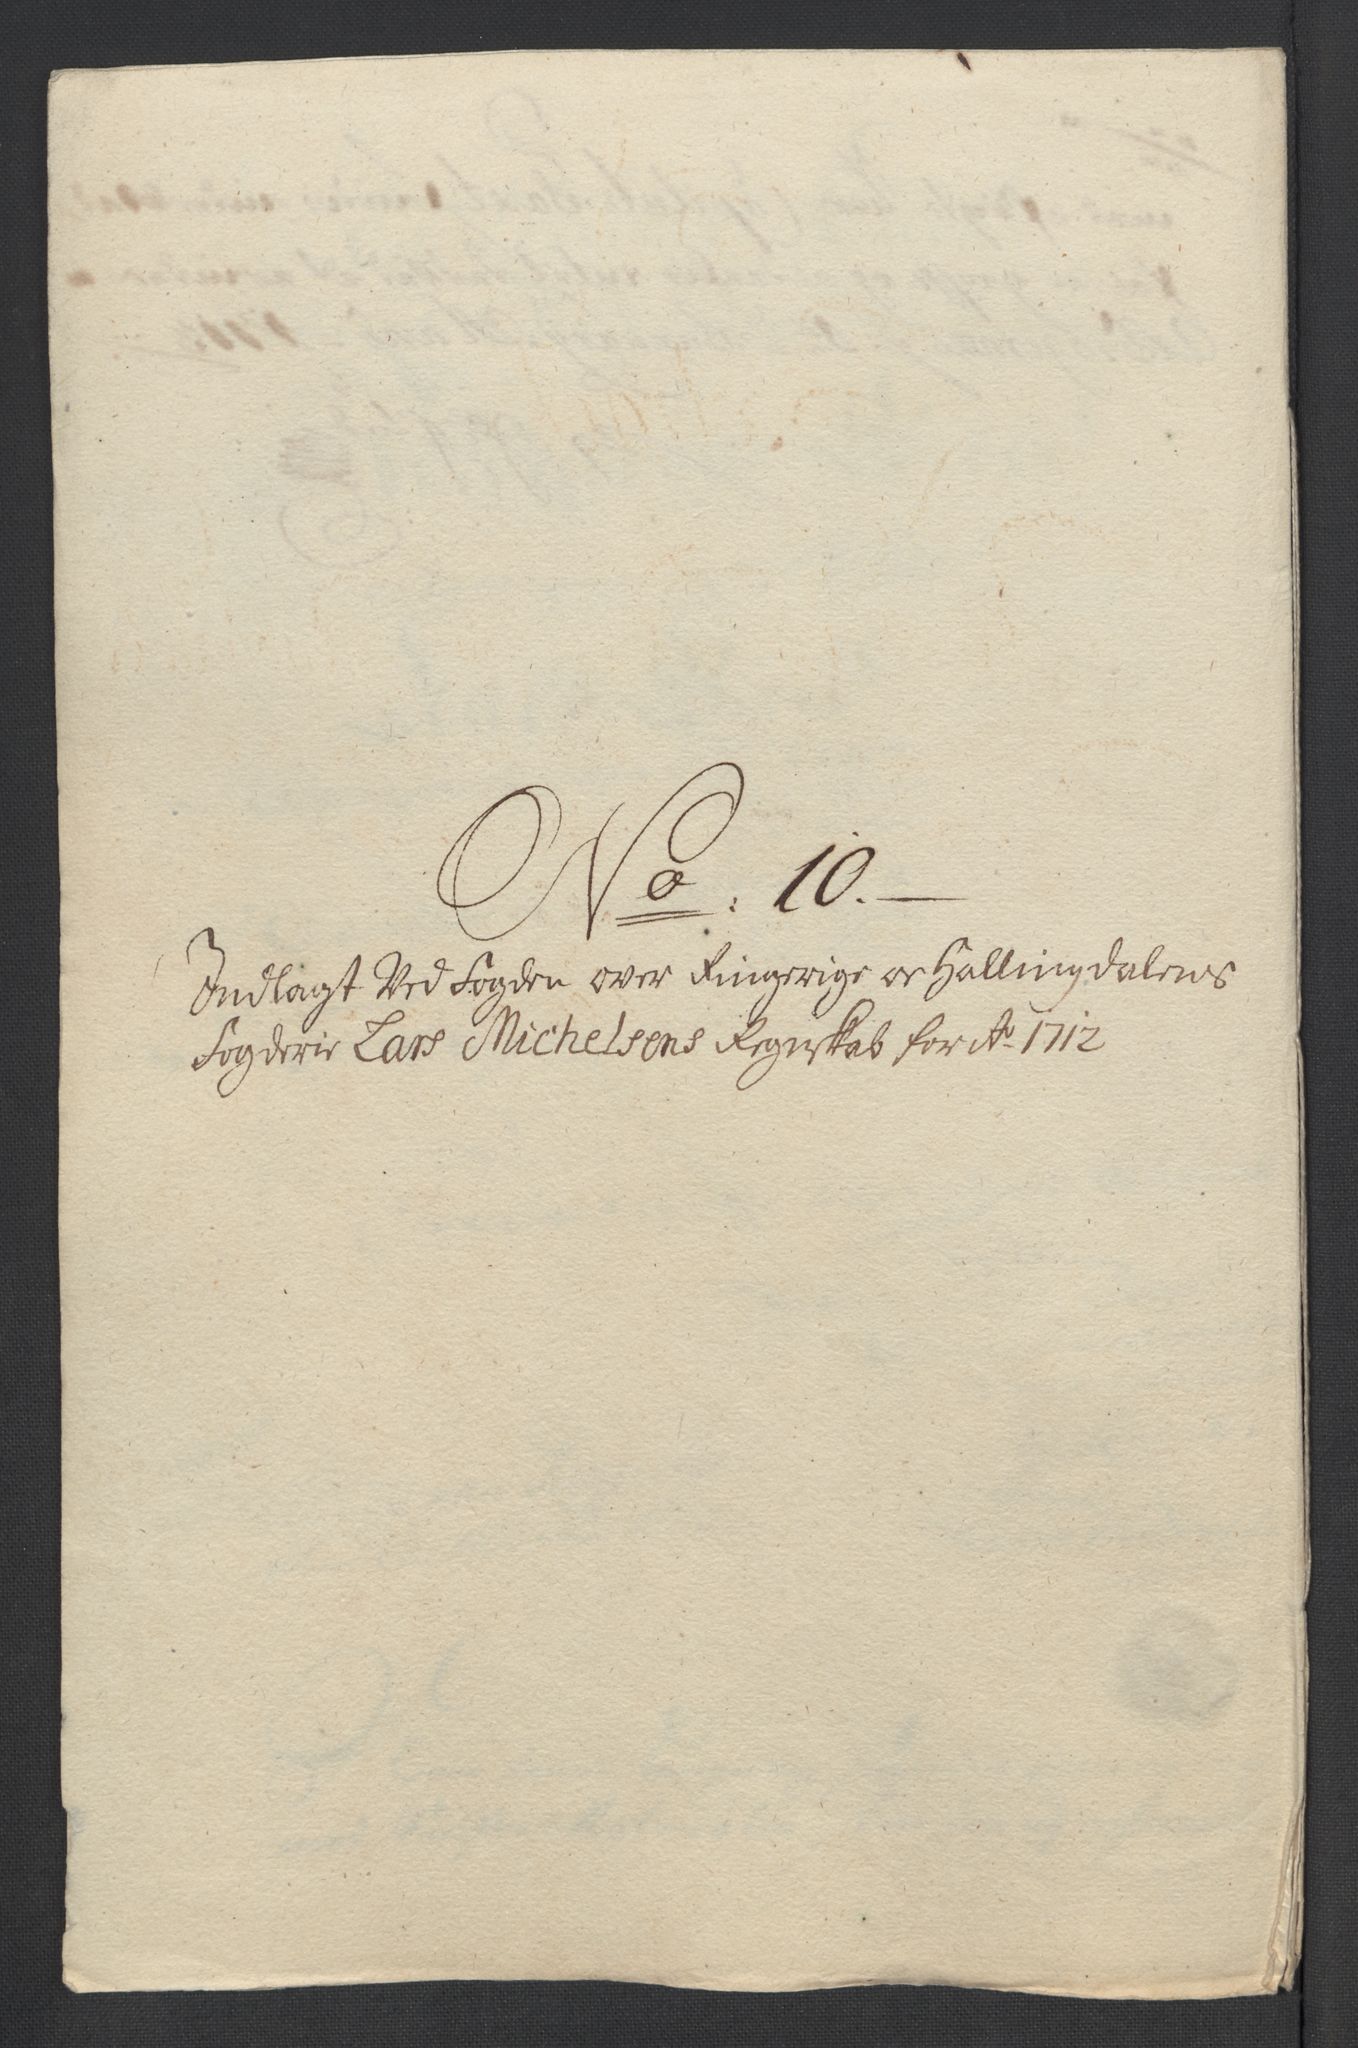 No: 10.
Indlagt Ved Fogden over Ringerige oc Hallingdalens
Fogderie Lars Michelsens Regnskab for Ao. 1712